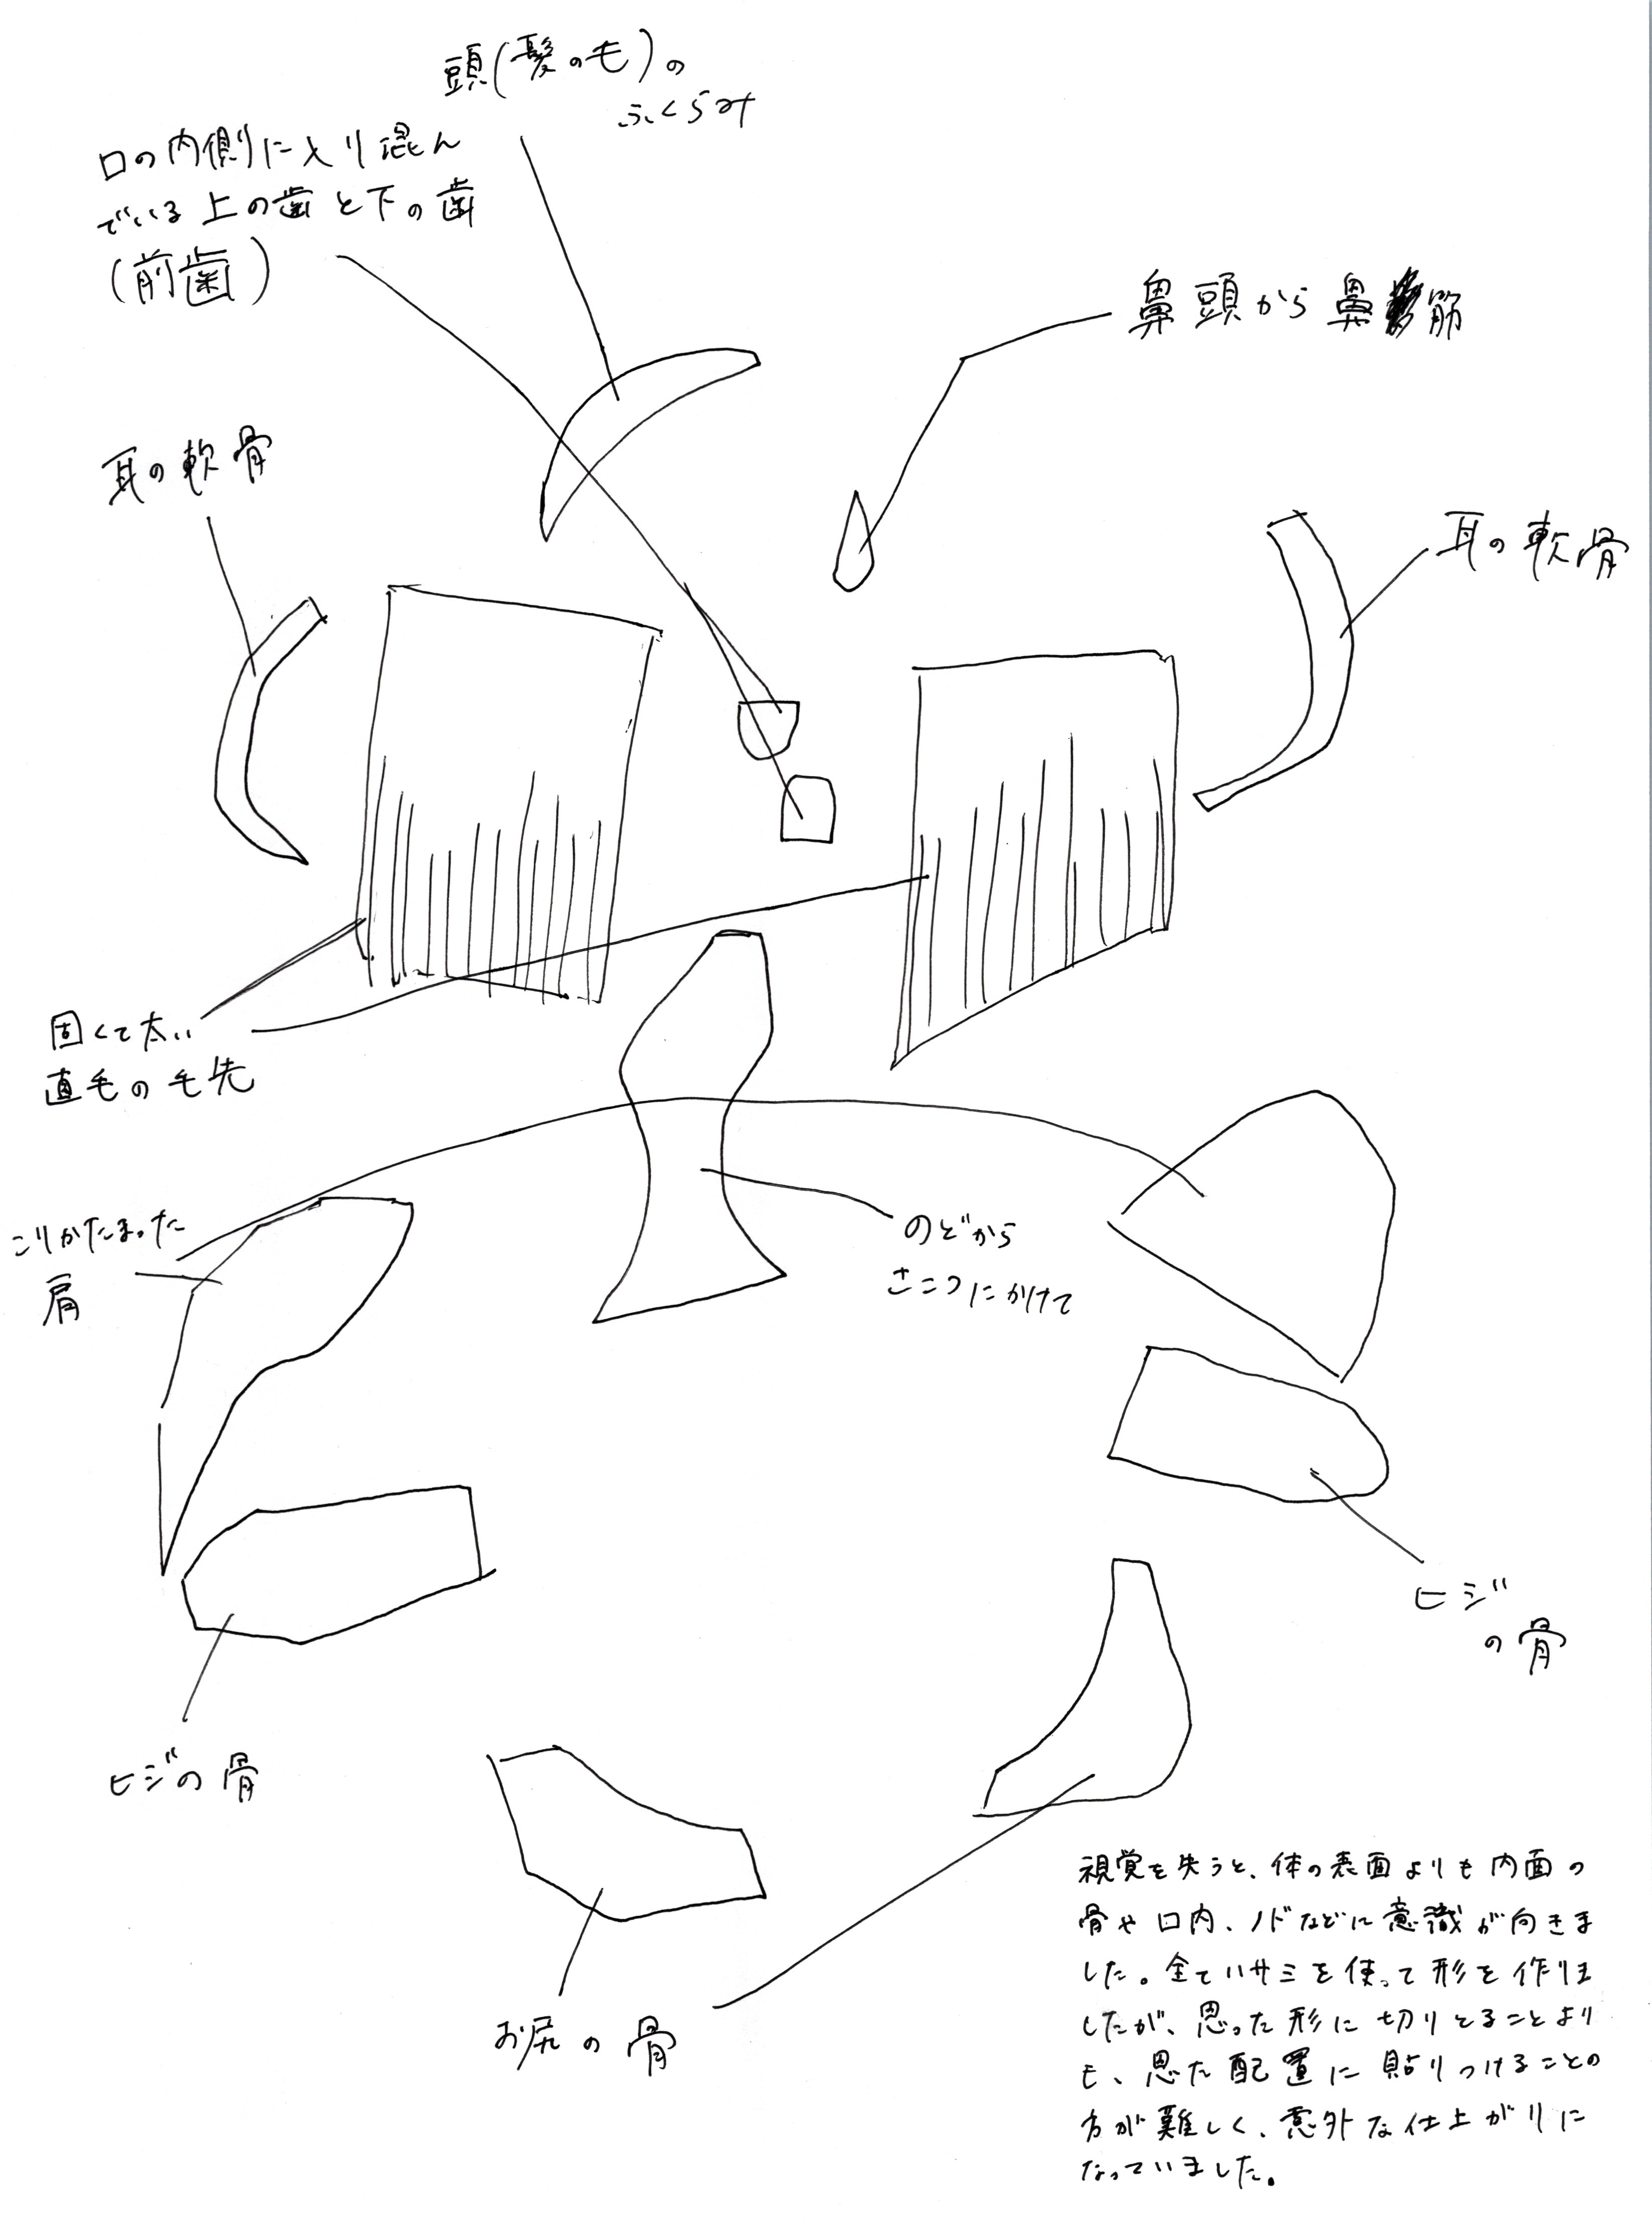 頭(髪の毛)の
ふくらみ
口の内側に入り混ん
でいる上の歯と下の歯
(前歯)
鼻頭から鼻筋
耳の軟骨
耳の軟骨
固くて太い
直毛の毛先
こりかたまった
肩
のどから
さこつにかけて
ヒジ
の骨
ヒジの骨
お尻の骨
視覚を失うと、体の表面よりも内面の
骨や口内、ノドなどに意識が向きま
した。全てハサミを使って形を作りま
したが、思った形に切りとることより
も、思た配置に貼りつけることの
方が難しく、意外な仕上がりに
なっていました。